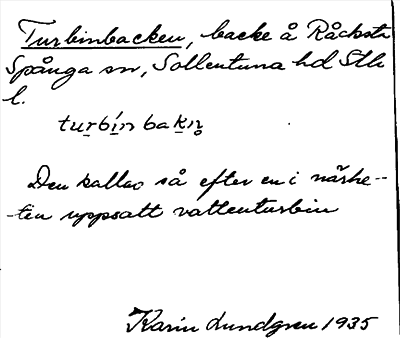 Turbinbacken, backe å Råcksta
Spånga sn, Sollentuna hd Sthlm
l.
turbín bakn̥
Den kallas så efter en i närhe-
-ten uppsatt vattenturbin
Karin Lundgren 1935